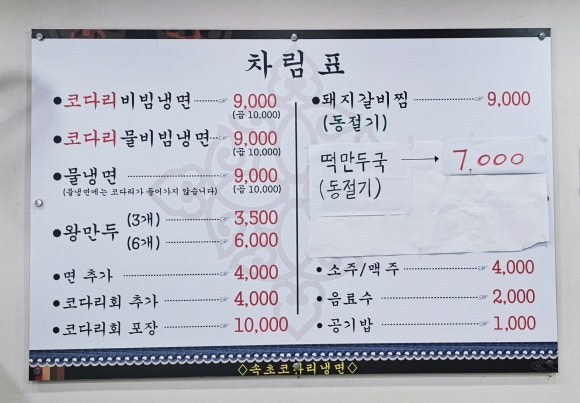 차림표
●코다리비빔냉면 ☞ 9,000
(곱 10,000)
●코다리물비빔냉면 ☞ 9,000
(곱 10,000)
●물냉면 ☞ 9,000
(물냉면에는 코다리가 들어가지 않습니다) (곱 10,000)
●왕만두 (3개) ☞ 3,500
(6개) ☞ 6,000
●면 추가 ☞ 4,000
●코다리회 추가 ☞ 4,000
●코다리회 포장 ☞ 10,000
●돼지갈비찜 ☞ 9,000
(동절기)
떡만두국 → 7,000
(동절기)
●소주/맥주 ☞ 4,000
●음료수 ☞ 2,000
●공기밥 ☞ 1,000
◇속초코다리냉면◇